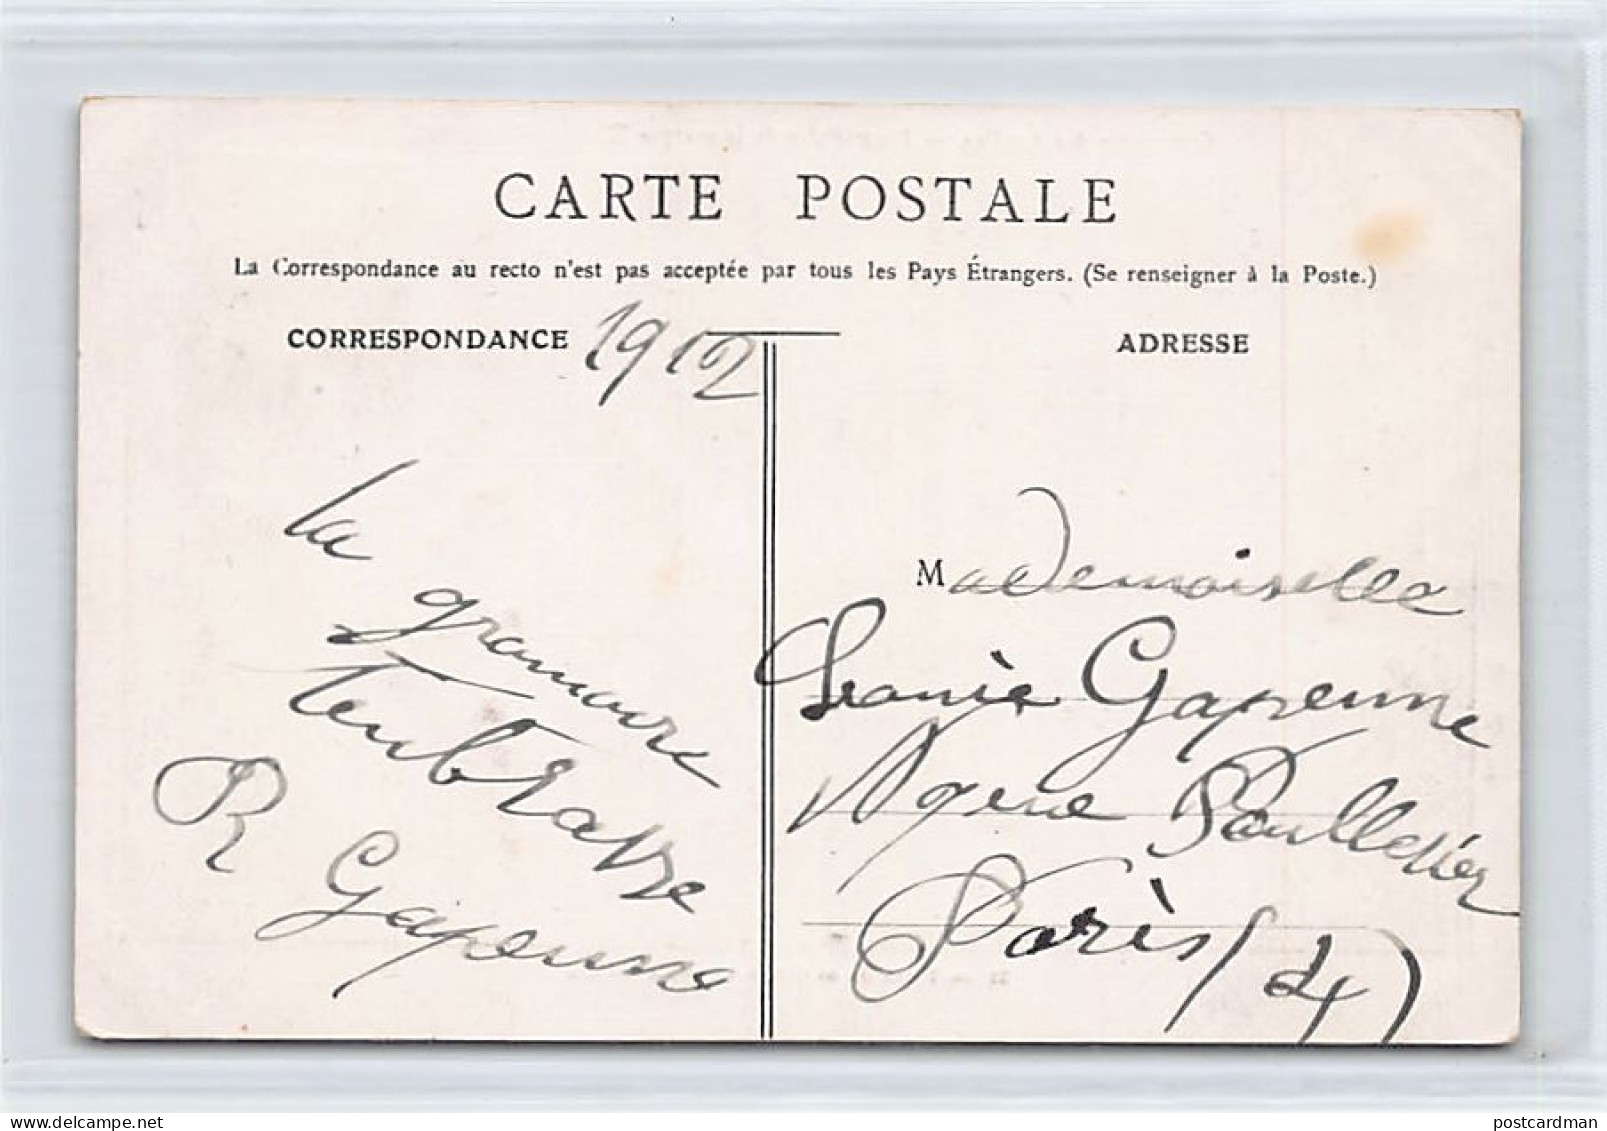 CARTE POSTALE
La Correspondance au recto n'est pas acceptée par tous les Pays Étrangers. (Se renseigner à la Poste.)
CORRESPONDANCE 1912
ADRESSE
la
gramaire
tenbrasse
R Gapenne
Mademoiselle
Gapenne
Poulletier
Paris (4)
postcardman